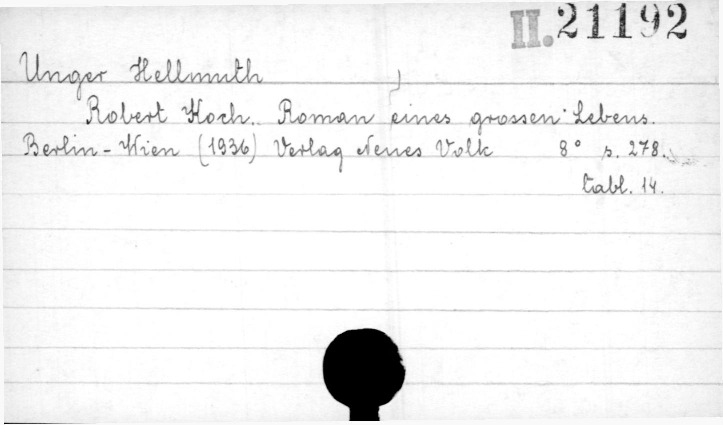 II. 21192
Unger Hellmuth
Robert Koch. Roman eines grossen Lebens.
Berlin - Wien (1936) Verlag Neues Volk 8° s. 278.
tabl. 14.